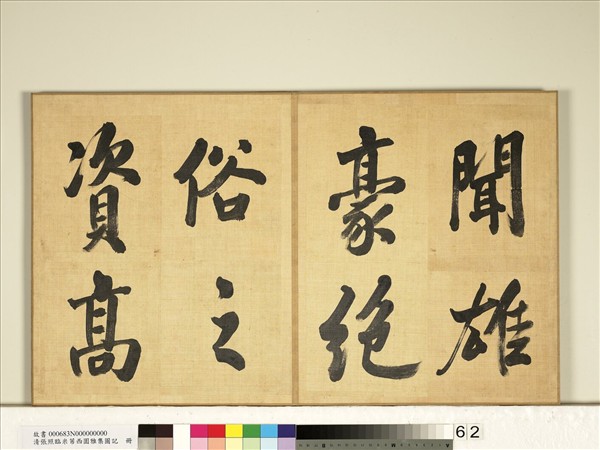 聞雄
豪絕
俗之
資高
故書 000683N000000000
清張照臨米芾西園雅集圖記 冊
62